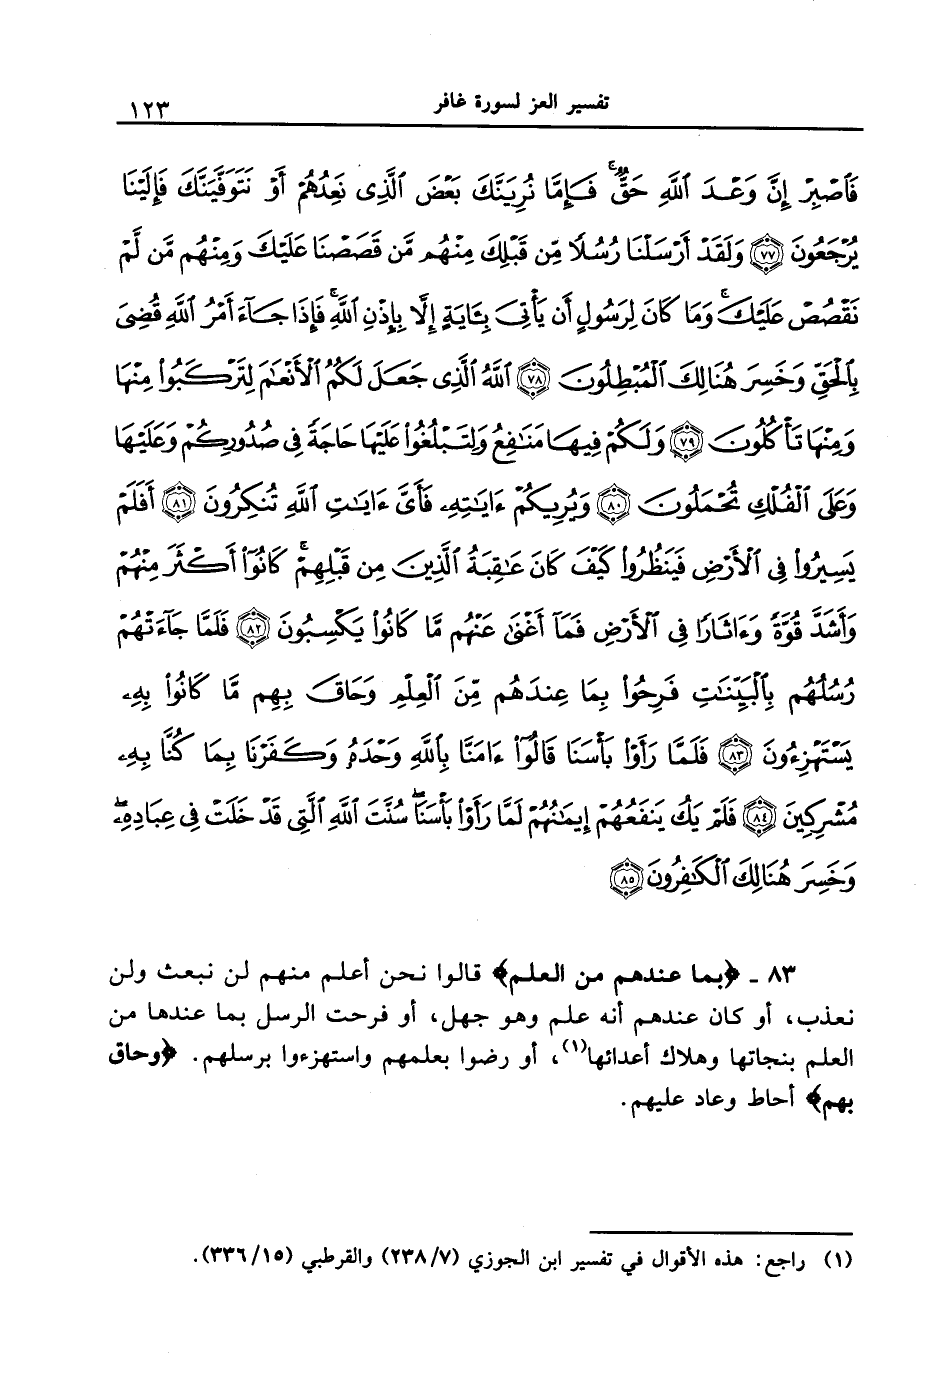 تفسير العز لسورة غافر
١٢٣
فَٱصۡبِرۡ إِنَّ وَعۡدَ ٱللَّهِ حَقّٞۚ فَإِمَّا نُرِيَنَّكَ بَعۡضَ ٱلَّذِي نَعِدُهُمۡ أَوۡ نَتَوَفَّيَنَّكَ فَإِلَيۡنَا
يُرۡجَعُونَ ٧٧ وَلَقَدۡ أَرۡسَلۡنَا رُسُلٗا مِّن قَبۡلِكَ مِنۡهُم مَّن قَصَصۡنَا عَلَيۡكَ وَمِنۡهُم مَّن لَّمۡ
نَقۡصُصۡ عَلَيۡكَۗ وَمَا كَانَ لِرَسُولٍ أَن يَأۡتِيَ بِـَٔايَةٍ إِلَّا بِإِذۡنِ ٱللَّهِۚ فَإِذَا جَآءَ أَمۡرُ ٱللَّهِ قُضِيَ
بِٱلۡحَقِّ وَخَسِرَ هُنَالِكَ ٱلۡمُبۡطِلُونَ ٧٨ ٱللَّهُ ٱلَّذِي جَعَلَ لَكُمُ ٱلۡأَنۡعَٰمَ لِتَرۡكَبُواْ مِنۡهَا
وَمِنۡهَا تَأۡكُلُونَ ٧٩ وَلَكُمۡ فِيهَا مَنَٰفِعُ وَلِتَبۡلُغُواْ عَلَيۡهَا حَاجَةٗ فِي صُدُورِكُمۡ وَعَلَيۡهَا
وَعَلَى ٱلۡفُلۡكِ تُحۡمَلُونَ ٨٠ وَيُرِيكُمۡ ءَايَٰتِهِۦ فَأَيَّ ءَايَٰتِ ٱللَّهِ تُنكِرُونَ ٨١ أَفَلَمۡ
يَسِيرُواْ فِي ٱلۡأَرۡضِ فَيَنظُرُواْ كَيۡفَ كَانَ عَٰقِبَةُ ٱلَّذِينَ مِن قَبۡلِهِمۡۚ كَانُوٓاْ أَكۡثَرَ مِنۡهُمۡ
وَأَشَدَّ قُوَّةٗ وَءَاثَارٗا فِي ٱلۡأَرۡضِ فَمَآ أَغۡنَىٰ عَنۡهُم مَّا كَانُواْ يَكۡسِبُونَ ٨٢ فَلَمَّا جَآءَتۡهُمۡ
رُسُلُهُم بِٱلۡبَيِّنَٰتِ فَرِحُواْ بِمَا عِندَهُم مِّنَ ٱلۡعِلۡمِ وَحَاقَ بِهِم مَّا كَانُواْ بِهِۦ
يَسۡتَهۡزِءُونَ ٨٣ فَلَمَّا رَأَوۡاْ بَأۡسَنَا قَالُوٓاْ ءَامَنَّا بِٱللَّهِ وَحۡدَهُۥ وَكَفَرۡنَا بِمَا كُنَّا بِهِۦ
مُشۡرِكِينَ ٨٤ فَلَمۡ يَكُ يَنفَعُهُمۡ إِيمَٰنُهُمۡ لَمَّا رَأَوۡاْ بَأۡسَنَاۖ سُنَّتَ ٱللَّهِ ٱلَّتِي قَدۡ خَلَتۡ فِي عِبَادِهِۦۖ
وَخَسِرَ هُنَالِكَ ٱلۡكَٰفِرُونَ ٨٥
٨٣ ـ ﴿بما عندهم من العلم﴾ قالوا نحن أعلم منهم لن نبعث ولن
نعذب، أو كان عندهم أنه علم وهو جهل، أو فرحت الرسل بما عندها من
العلم بنجاتها وهلاك أعدائها(١)، أو رضوا بعلمهم واستهزءوا برسلهم. ﴿وحاق
بهم﴾ أحاط وعاد عليهم.
(١) راجع: هذه الأقوال في تفسير ابن الجوزي (٢٣٨/٧) والقرطبي (٣٣٦/١٥).